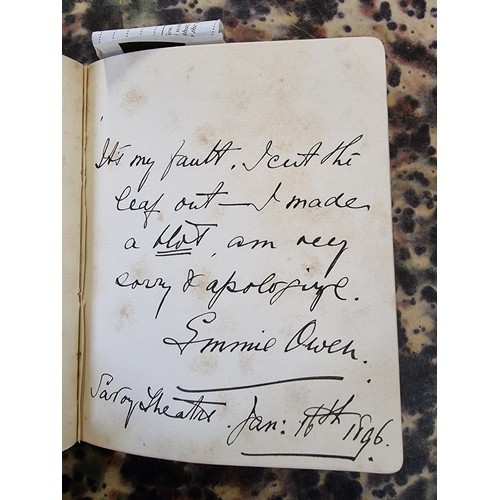 It's my fault. I cut the
leaf out — I made
a blot, am very
sorry & apologize.
Emmie Owen.
Savoy Theatre. Jan: 16th 1896.